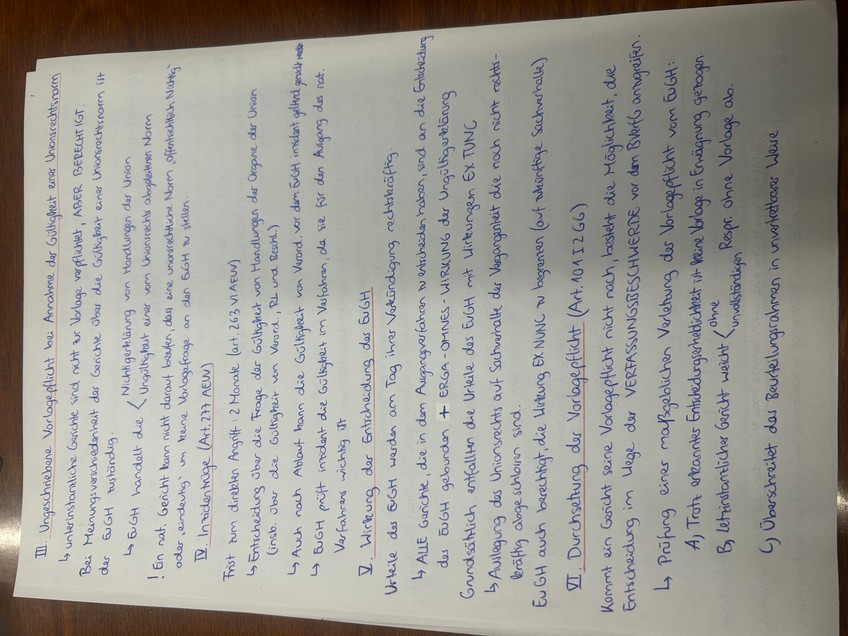 III. Ungeschriebene Vorlagepflicht bei Annahme der Gültigkeit einer Unionsrechtsnorm
↳ unterinstantliche Gerichte sind nicht zur Vorlage verpflichtet, ABER BERECHTIGT.
Bei Meinungsverschiedenheit der Gerichte über die Gültigkeit einer Unionsrechtsnorm ist
der EuGH zuständig.
↳ EuGH handelt die < Nichtigerklärung von Handlungen der Union
Ungültigkeit einer vom Unionsrechts abgeleiteten Norm
! Ein nat. Gericht kann nicht darauf berufen, dass eine unionsrechtliche Norm „offensichtlich" Nichtig
oder „eindeutig" um keine Vorlagefrage an den EuGH zu stellen.
IV. Inzidentrüge (Art. 277 AEUV)
Frist zum direkten Angriff: 2 Monate (art. 263 VI AEUV)
↳ Entscheidung über die Frage der Gültigkeit von Handlungen der Organe der Union
(insb. über die Gültigkeit von Verord., RL und Beschl.)
↳ Auch nach Ablauf kann die Gültigkeit von Verord. vor dem EuGH inzident geltend gemacht werden
↳ EuGH prüft inzident die Gültigkeit im Verfahren, da sie für den Ausgang des nat.
Verfahrens wichtig ist
V. Wirkung der Entscheidung des EuGH
Urteile des EuGH werden am Tag ihrer Verkündigung rechtskräftig
↳ ALLE Gerichte, die in dem Ausgangverfahren zu entscheiden haben, sind an die Entscheidung
des EuGH gebunden + ERGA-OMNES-WIRKUNG der Ungültigerklärung
Grundsätzlich entfallten die Urteile des EuGH mit Wirkungen EX TUNC
↳ Auslegung des Unionsrechts auf Sachverhalte der Vergangenheit die noch nicht rechts-
kräftig abgeschlossen sind.
EuGH auch berechtigt, die Wirkung EX NUNC zu begrenzen (auf zukünftige Sachverhalte)
VI Durchsetzung der Vorlagepflicht (Art. 101 I 2 GG)
Kommt ein Gericht seine Vorlagepflicht nicht nach, besteht die Möglichkeit, die
Entscheidung im Wege der VERFASSUNGSBESCHWERDE vor dem BVerfG anzugreifen.
↳ Prüfung einer maßgeblichen Verletzung der Vorlagepflicht vom EuGH:
A) Trotz erkannter Entscheidungserheblichkeit ist keine Vorlage in Erwägung gezogen.
B) Letztinstantlicher Gericht weicht < ohne
unvollständigen Respr. ohne Vorlage ab.
C) Überschreitet das Beurteilungsrahmen in unvertretbarer Weise